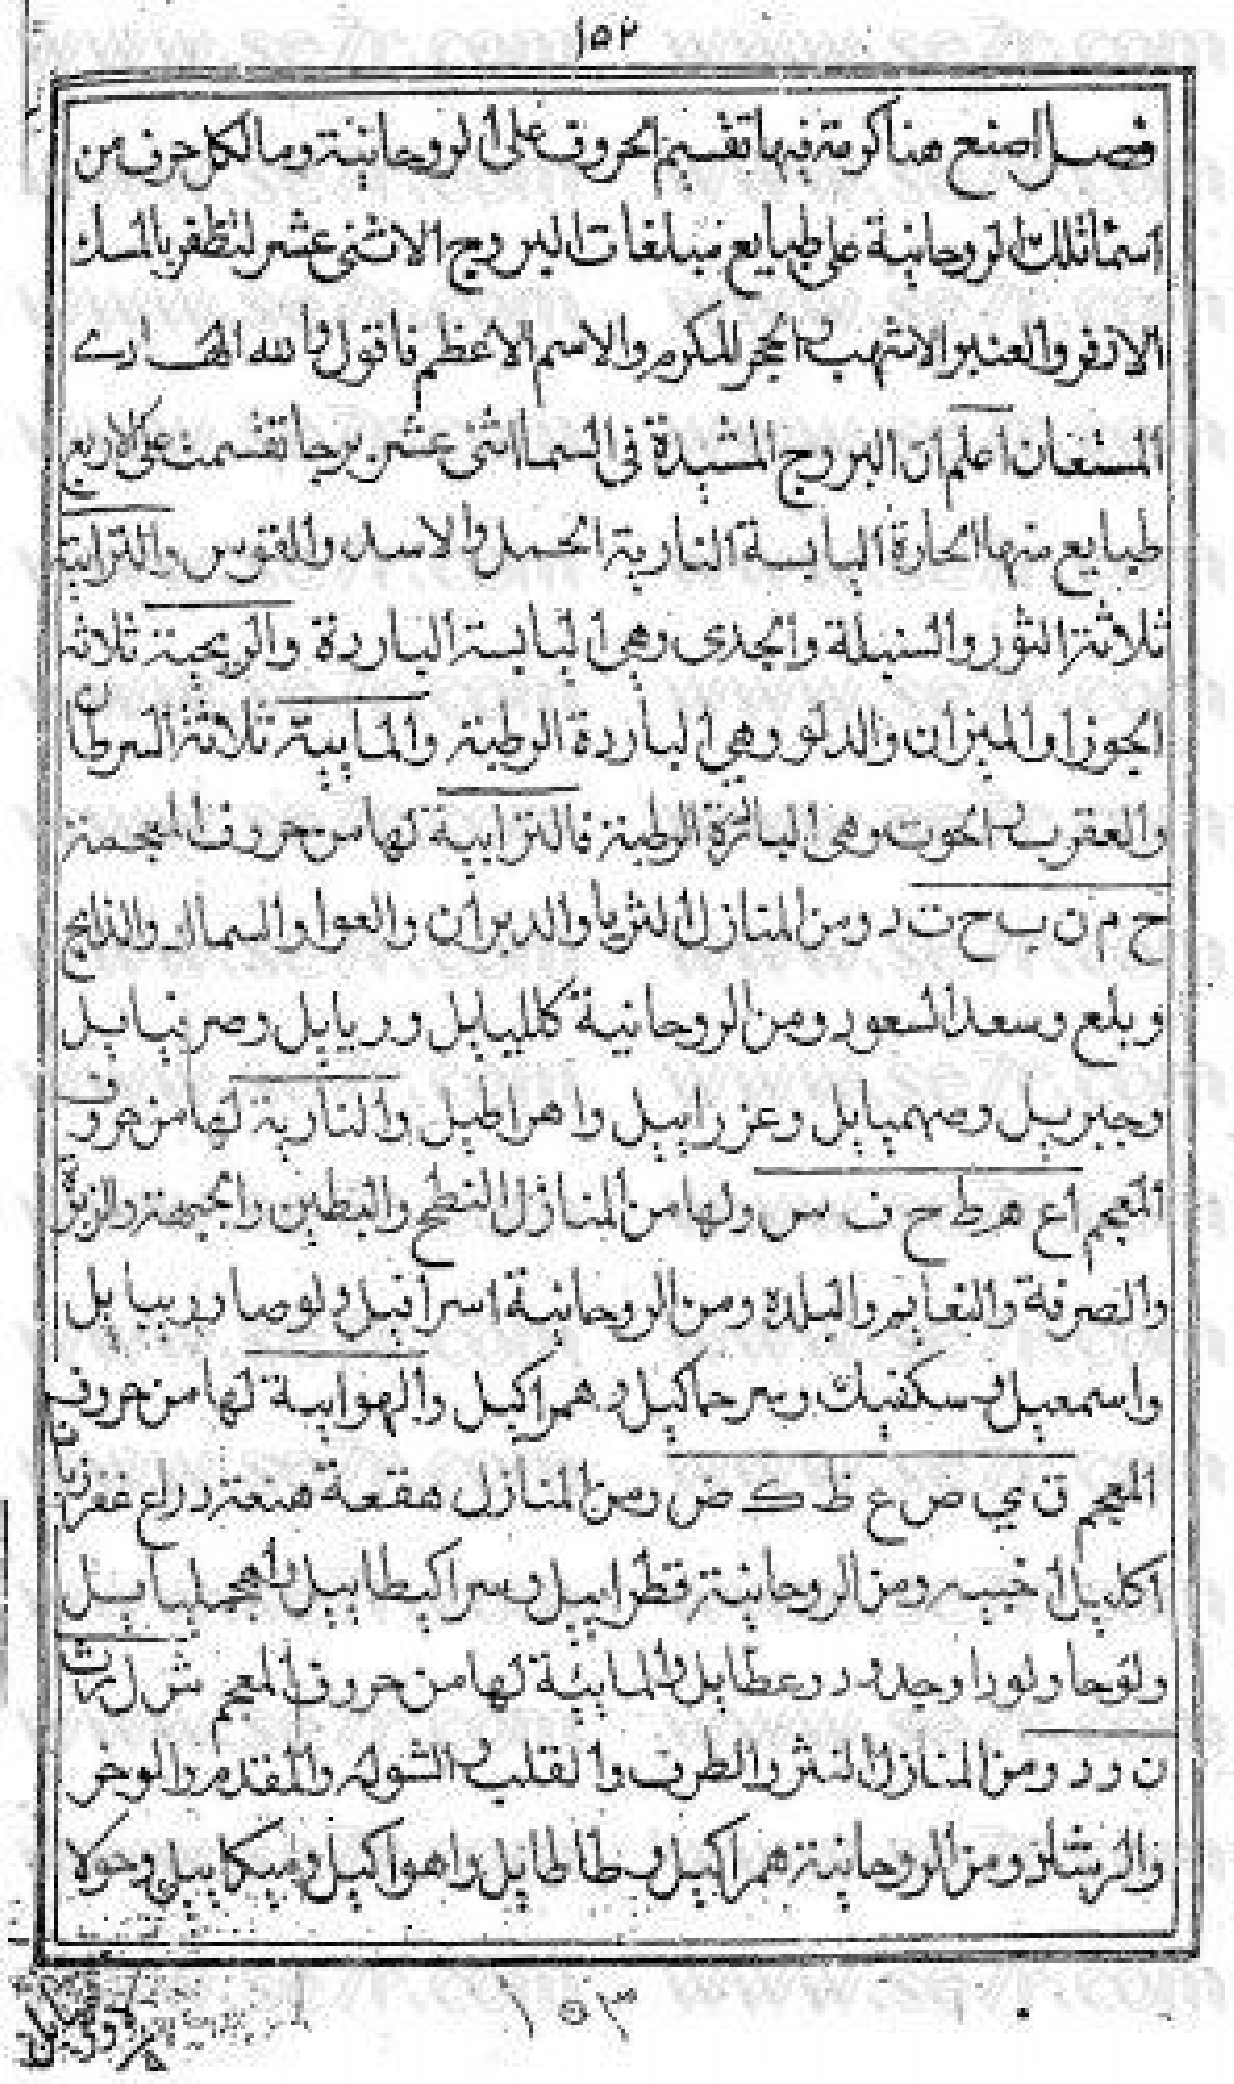 ١٥٢
فصل اصنع هنا كرمة فيها تقسيم الحروف على الروحانية وما لكل حرف من
اسمائلك الروحانية على طبايع مبلغات البروج الاثنى عشر لتظفر بالمسك
الاذفر والعنبر الاشهب والحجر المكرم والاسم الاعظم فاقول بالله الهادى
المستعان اعلم ان البروج المشيدة فى السما اثنى عشر برجا تقسمت على الاربع
طبايع منها الحارة اليابسة النارية الحمل والاسد والقوس والترابية
ثلاثة الثور والسنبلة والجدى وهى اليابسة الباردة والريحية ثلاثة
الجوزا والميزان والدلو وهى الباردة الرطبة والمايية ثلاثة السرطان
والعقرب والحوت وهى الرطبة فالترابية لها من حروف المعجمة
ح م ن ب ح ت د ومن المنازل الثريا والدبران والعوا والسماك والذابح
وبلع وسعد السعود ومن الروحانية كلليايل ودريايل وصرنيايل
وجبريل وصهميايل وعزراييل واهراطيل والنارية لها من حروف
المعجم ا ع ه ط ح ف س ولها من المنازل النطح والبطين والجبهة والزبرة
والصرفة والنعايم والبلدة ومن الروحانية اسرافيل ولوصا وديبيايل
واسمعيل وسكفيك وسرحماكيل وهمراكيل والهوايية لها من حروف
المعجم ق ي ص ع ظ ك ض ومن المنازل هقعة هنعة دراع غفر زبانا
اكليل اخبيه ومن الروحانية قطراييل وسراكيطاييل وهجمليايل
ولوحا ولورا وجد ودردعطايل والمايية لها من حروف المعجم ش ل ث
ن و د ومن المنازل النثر والطرف والقلب والشوله والمقدم والموخر
والرشا ومن الروحانية همراكيل وطاطايل واهواكيل وميكاييل وحولا
١٥٣